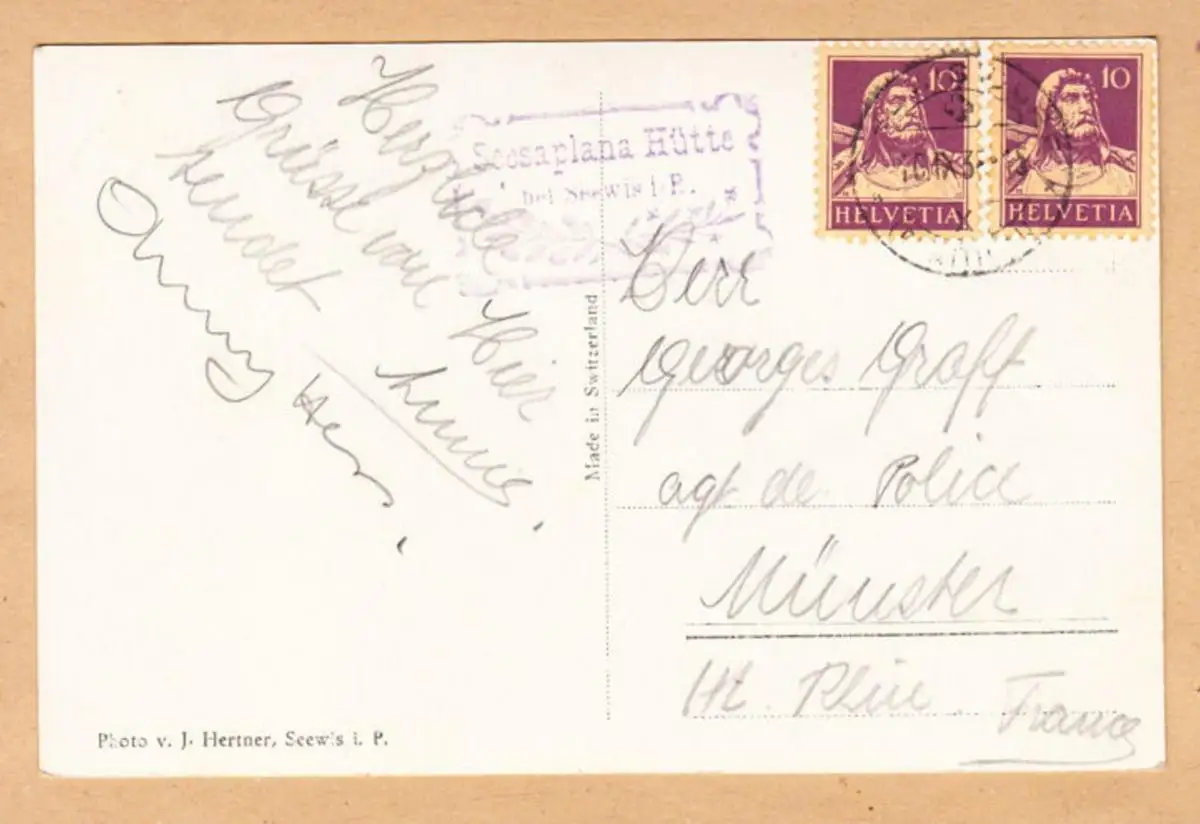 Herzliche
Grüssl von Hier
sendet
Seesaplana Hütte
bei Seewis i. P.
10
HELVETIA
10
HELVETIA
Made in Switzerland
Herr
Georges Graff
agt de Police
Münster
Ht. Rhin. France
Photo v. J. Hertner, Seewis i. P.